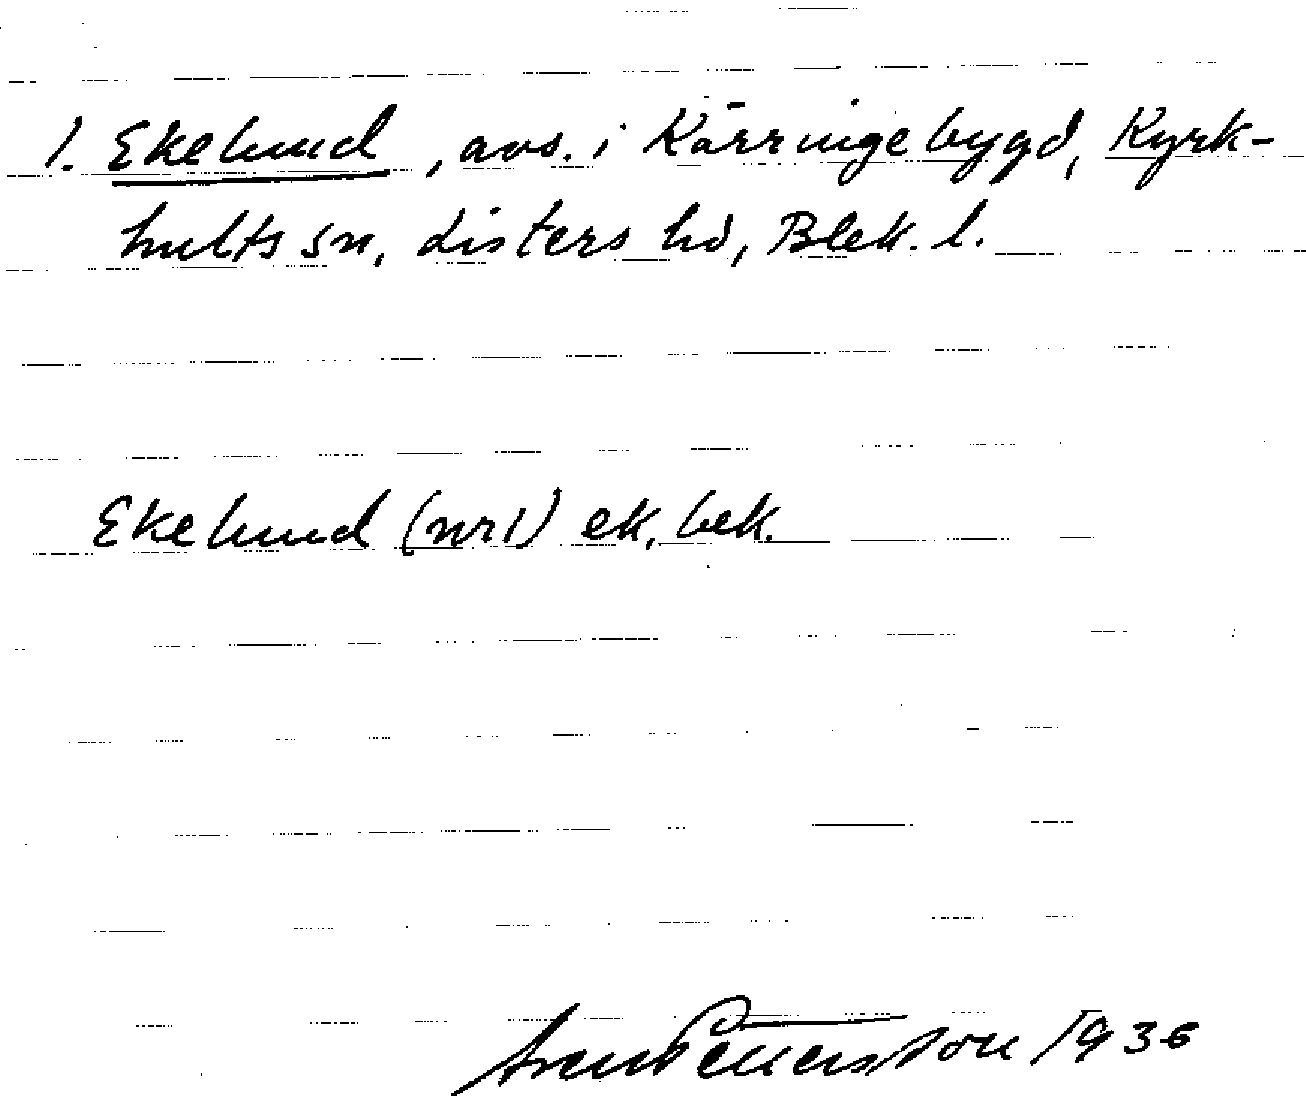 1. Ekelund, avs. i Kärringebygd, Kyrk-
hults sn, Listers hd, Blek. l.
Ekelund (nr 1) ek. bek.
Pettersson 1936